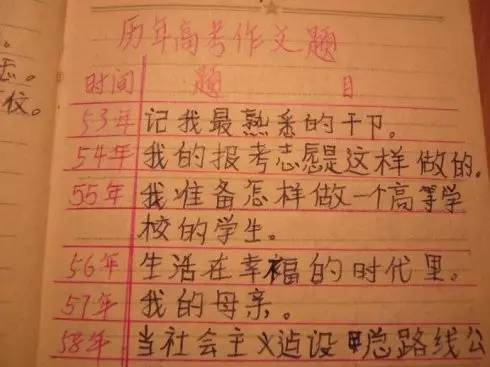 志。
位。
历年高考作文题
时间 题目
53年 记我最熟悉的干卩。
54年 我的报考志愿是这样做的。
55年 我准备怎样做一个高等学
校的学生。
56年 生活在幸福的时代里。
57年 我的母亲。
58年 当社会主义建设总路线公